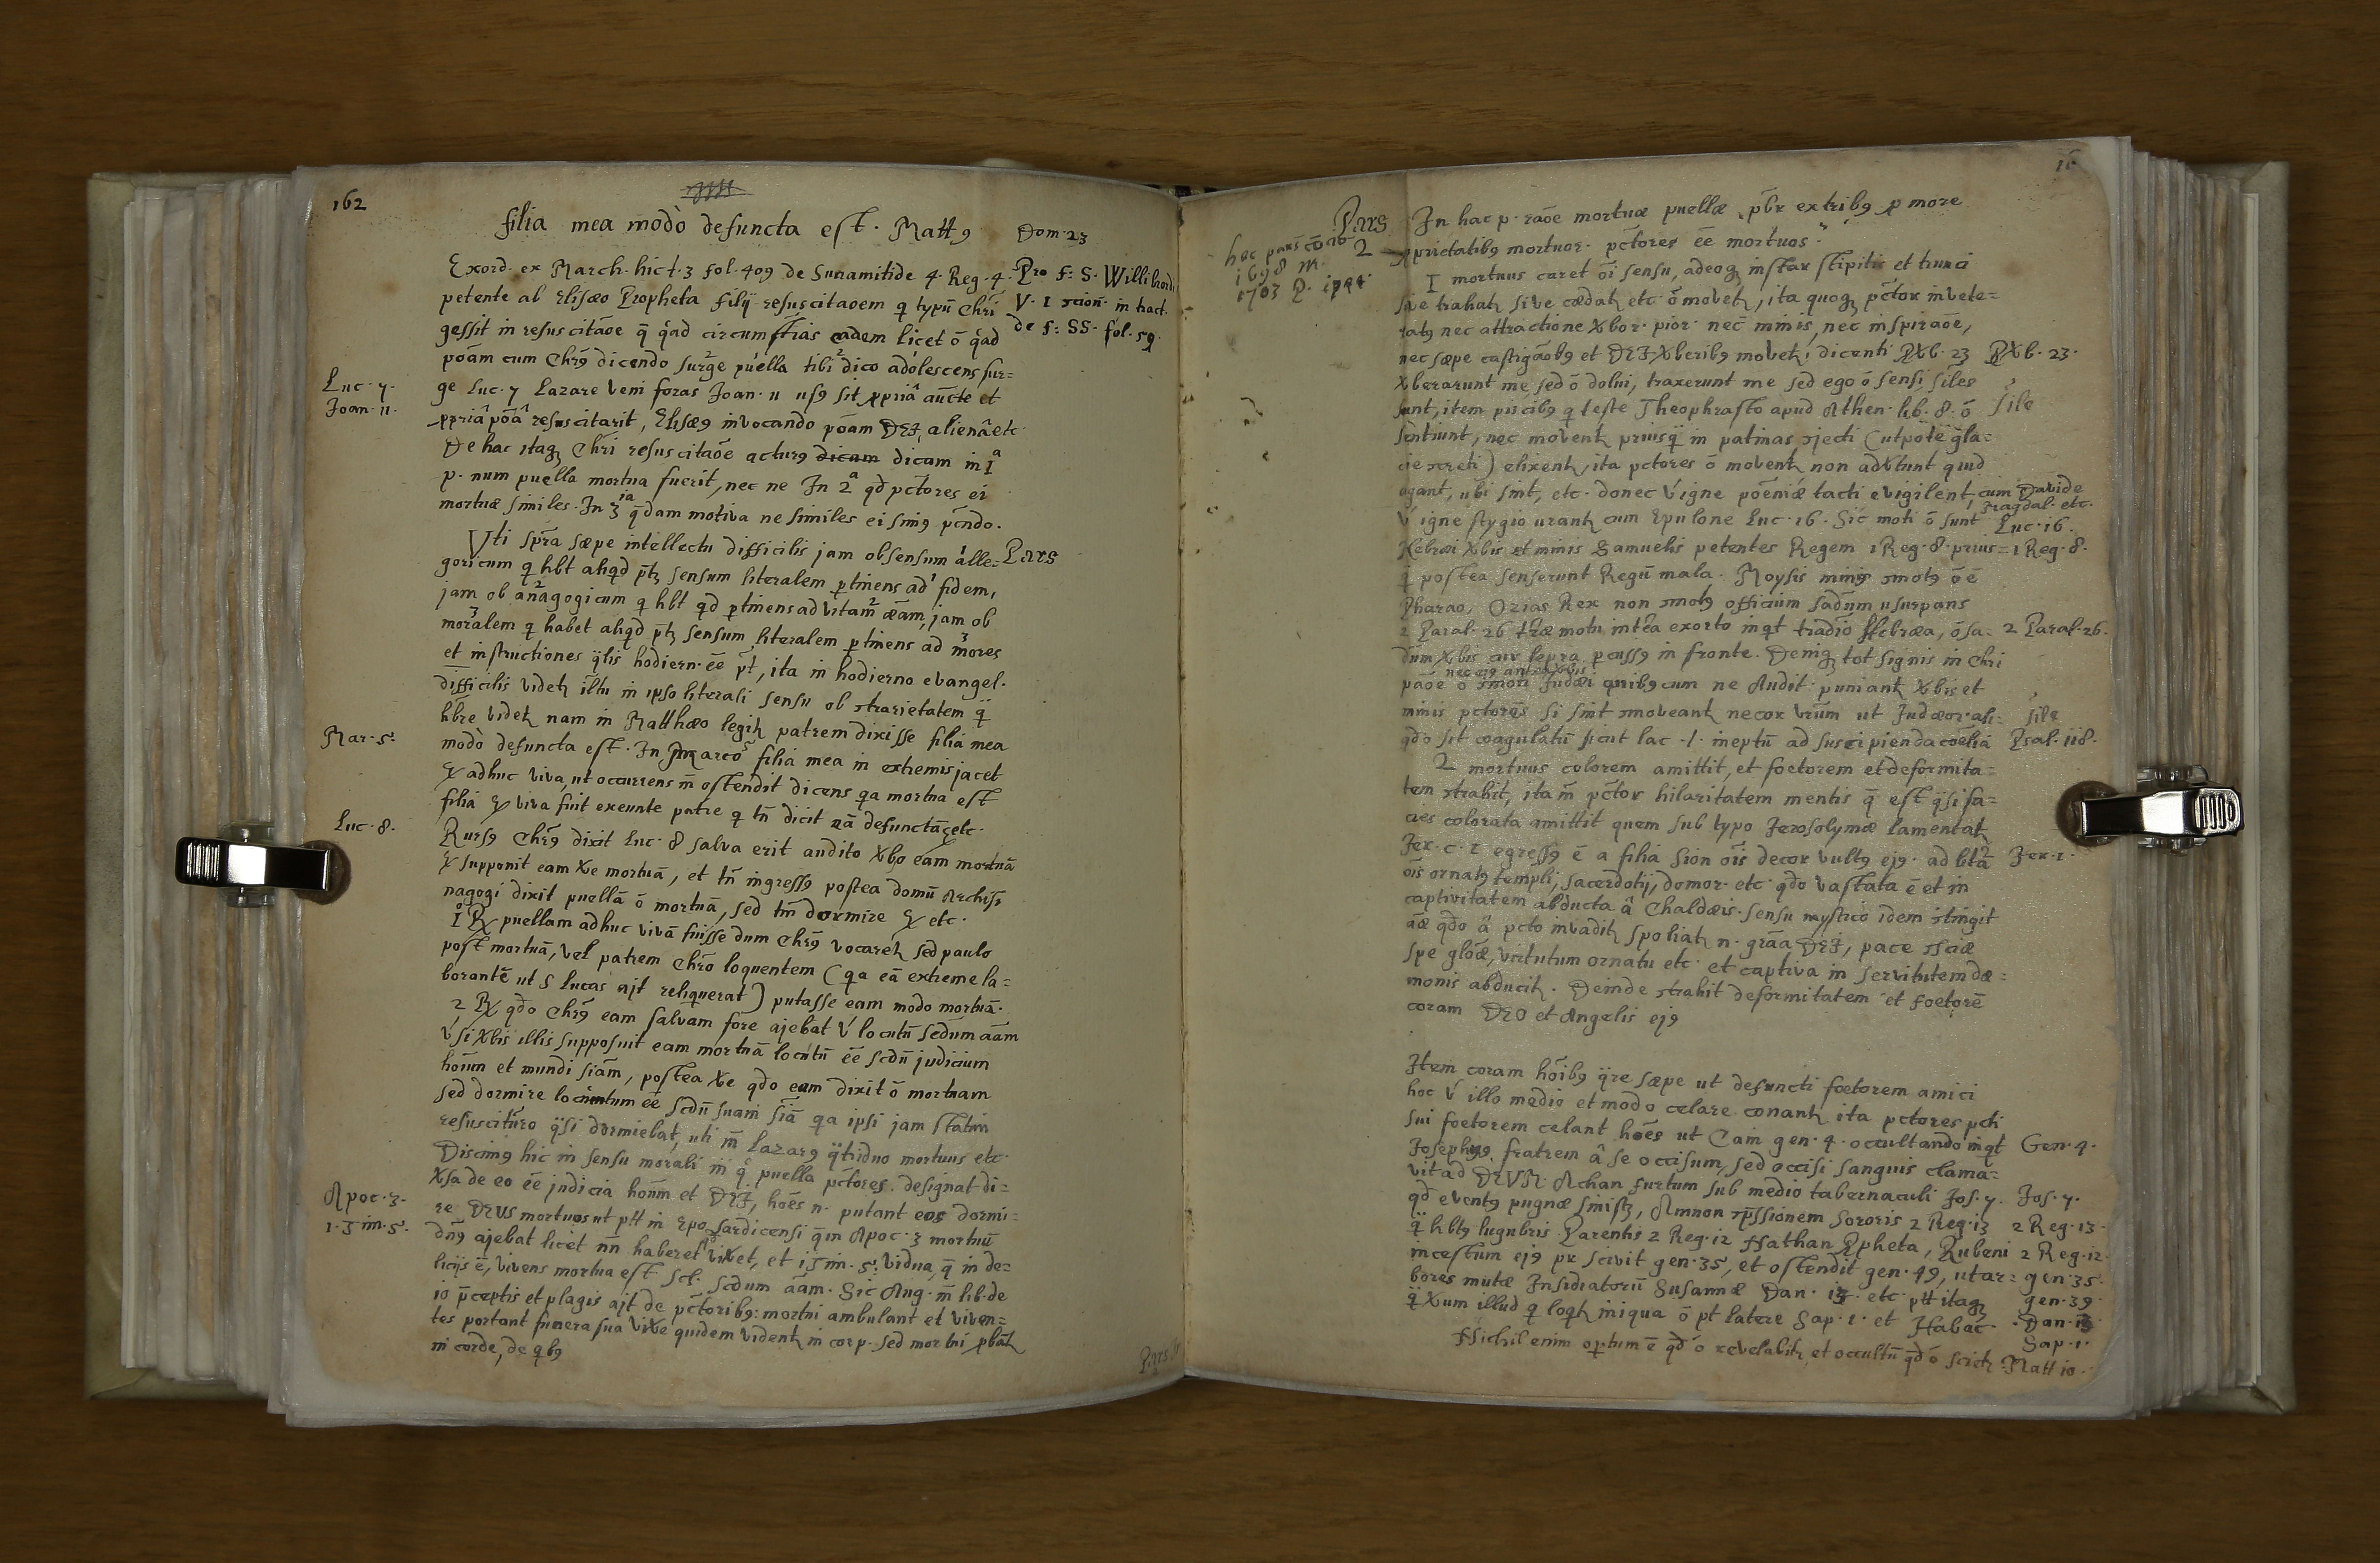 162
filia mea modò defuncta est. Matt 9 Dom. 23
Exord. ex March. hic t. 3 fol. 409 de Sunamitide 4. Reg. 4. Pro f. S. Willibrordi
petente ab Elisæo Propheta filij resuscitaõem q typũ Chri V. 1 in tract.
gessit in resuscitãoe q̃ q̃ad circumstias eadem licet õ q̃ad de f. SS. fol. 59.
põam cum Chrõ dicendo surge puella tibi dico adolescens sur=
Luc. 7. ge Luc. 7 Lazare veni foras Joan. 11 usq sit ppriâ aũcte et
Joan. 11. ppriâ põâ resuscitarit, Elisæq invocando põam DEI, alienâ etc.
De hac itaq Chri resuscitãoe acturq dicam dicam in 1ª
p. num puella mortua fuerit, nec ne In 2ª qđ pctores ei
mortuæ similes. In 3ia q̃dam motiva ne similes ei simq pñdo.
Uti spra sæpe intellectu difficilis jam ob sensum alle= Pars
goricum q hbt aliqd pt sensum literalem ptinens ad fidem,
jam ob anagogicum q hbt qđ ptinens ad vitam æãm, jam ob
moralem q habet aliqd pt sensum literalem ptinens ad mores
et instructiones q̃lis hodiern. ẽe pt, ita in hodierno evangel.
difficilis videt in ipso literali sensu ob strarietatem q̃
hbre videt nam in Matthæo legit patrem dixisse filia mea
Mar. 5. modò defuncta est. In Marco filia mea in extremis jacet
adhuc viva, ut occurrens m̃ ostendit dicens qa mortua est
filia viva fuit exeunte patre q tñ dicit eã defunctã etc.
Luc. 8. Rursq Chrq dixit Luc. 8 salva erit audito Xbo eam mortuã
supponit eam Xe mortuã, et tñ ingressq postea domũ Archisy
nagogi dixit puellã õ mortuã, sed tm̃ dormire etc.
1 puellam adhuc vivã fuisse dum Chrq vocaret sed paulo
post mortuã, vel patrem Chro loquentem (qa eã extreme la=
borantẽ ut S Lucas ajt reliquerat) putasse eam modo mortuã.
2 qđo Chrq eam salvam fore ajebat v locutũ sedum aãm
v si Xbis illis supposuit eam mortuã locutũ ẽe scdũ judicium
hoium et mundi siãm, postea Xe qđo eam dixit õ mortuam
sed dormire locutum ẽe scdũ suam siã qa ipsi jam statim
resuscituro q̃si dormiebat, uti m̃ Lazarq q̃tiduo mortuus etc.
Discimq hic in sensu morali m̃ q puella pctores designat di=
Xsa de eo ẽe judicia hoium et DEI, hões n. putant eos dormi=
Apoc. 3. re DEUS mortuos ut ptt in Epo sardicensi q̃m Apoc. 3 mortuũ
1. Tim. 5. dñq ajebat licet nñ haberet viXet, et 1 Tim. 5. vidua, q̃ in de=
licijs ẽ, vivens mortua est scl. scdum aãm. Sic Aug. m̃ lib. de
10 pceptis et plagis ajt de pctoribq: mortui ambulant et viven=
tes portant funera sua viXe quidem vident in corp. sed mortui pbat
in corde, de qbq
Pars
16
Pars In hac p. raõe mortuæ puellæ pbr ex tribq p more
hæc pars 2 pprietatibq mortuor. pctores ẽe mortuos.
1698 M. 1 mortuus caret õi sensu, adeoq instar stipitis et trunci
1703 P. sive trahat sive cædat etc. õ movet, ita quoq pctor invete=
ratq nec attractione Xbor. pior. nec minis, nec inspiraõe,
nec sæpe castigaõbq et DEI Xberibq movet, dicenti PXb. 23 PXb. 23.
Xberarunt me sed õ dolui, traxerunt me sed ego õ sensi siles
sunt, item piscibq q teste Theophrasto apud Athen. lib. 8. õ sile
sentiunt, nec movent priusq̃ in patinas sjecti (utpote gla=
cie screti) elixent, ita pctores õ movent non advtunt quid
agant, ubi sint, etc. donec v igne põeniæ tacti evigilent, cum Davide
Magdal. etc.
v igne stygio urant cum Epulone Luc. 16. Sic moti õ sunt Luc. 16.
Hebræi Xbis et minis Samuelis petentes Regem 1 Reg. 8. prius= 1 Reg. 8.
q̃ postea senserunt Regũ mala. Moysis minis smotq õ ẽ
Pharao, Ozias Rex non smotq officium sadum usurpans
2 Paral. 26 træ motu intẽa exorto inqt tradio Hebræa, õ sa= 2 Paral. 26.
dum Xbis cur lepra pcussq in fronte. Deniq tot signis in Chri
nec ejq ante Xbis
paõe õ smoti Judæi quibq cum ne Audit. puniant Xbis et
minis pctores si sint smoveant necor vrũm ut Judæor. ali= sile
qđo sit coagulatũ sicut lac .1. ineptũ ad suscipienda cœlia Psal. 118.
2 mortuus colorem amittit, et foetorem et deformita=
tem strahit, ita m̃ pctor hilaritatem mentis q̃ est q̃si fa=
cies colorata amittit quem sub typo Jerosolymæ lamentat
Jer. c. 1 egressq ẽ a filia Sion ois decor vultq ejq. ad litã Jer. 1.
ois ornatq templi, sacerdotij, domor. etc. qđo vastata ẽ et in
captivitatem abducta â Chaldæis. sensu mystico idem stingit
aæ qđo â pcto invadit spoliat n. grãa DEI, pace sciæ
spe gloæ, virtutum ornatu etc. et captiva in servitutem dæ=
monis abducit. Deinde strahit deformitatem et foetorẽ
coram DEO et Angelis ejq
Item coram hoibq q̃re sæpe ut defuncti foetorem amici
hoc v illo medio et modo celare conant ita pctores pcti
sui foetorem celant hões ut Cain gen. 4. occultando inqt Gen. 4.
Josephq. fratrem â se occisum, sed occisi sanguis clama=
vit ad DEUM. Achan furtum sub medio tabernaculi Jos. 7. Jos. 7.
qđ eventq pugnæ sinist, Amnon spssionem Sororis 2 Reg. 13 2 Reg. 13.
q̃ hbtq lugubris Parentis 2 Reg. 12 Nathan Ppheta, Rubeni 2 Reg. 12.
incestum ejq pr scivit gen. 35, et ostendit gen. 49, ut ar= gen. 35.
bores mutæ Insidiatorũ Susannæ Dan. 13. etc. ptt itaq gen. 39.
q̃ Xum illud q loqt iniqua õ pt latere Sap. 1. et Habac. Dan. 13
Sap. 1.
Nichil enim optum ẽ qđ õ revelabit, et occultũ qđ õ sciet Matt 10.